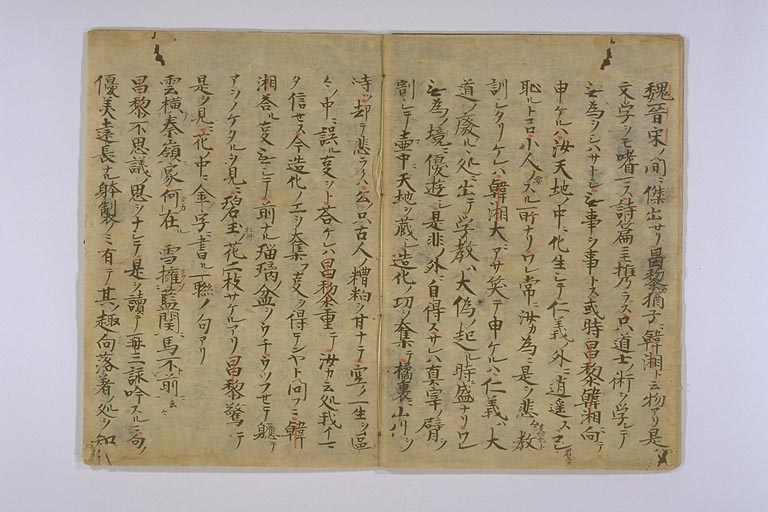 魏晋宋ノ間ニ傑出セリ昌黎猶子ニ韓湘ト云物アリ是ハ
文学ヲモ嗜ス詩篇ニモ携ラス只道士ノ術ヲ学テ
無為ヲシハサトシ無事ヲ事トス或時昌黎韓湘ニ向テ
申ケルハ汝天地ノ中ニ化生シテ仁義ノ外ニ逍遥ス
恥ルトコロ小人ノスル所ナリワレ常ニ汝カ為ニ是ヲ悲ト教
訓シタリケレハ韓湘大ニアサ笑テ申ケルハ仁義ハ大
道ノ廃ル処ニ出テ学教ハ大偽ノ起ル時ニ盛ナリワレ
無為ノ境ニ優遊シ是非ノ外ニ自得スサレハ真宰ノ臂ヲ
割シテ壷中ニ天地ヲ蔵シ造化ノ功ヲ集テ橘裏ニ山川ヲ
峙ツ却テ悲ラクハ公ノ只古人ノ糟粕ヲ甘ナテ空ク一生ヲ区
々ノ中ニ誤ル事ヲト答ケレハ昌黎重テ汝カ云処我イマ
タ信セス今造化ノ工ヲ集ル事ヲ得テンヤト問フニ韓
湘答ル事無シテ前ナル瑠璃ノ盆ヲウチウツフセテ軈テ
アヲノケタルヲ見ニ碧玉ノ花一枝サケルアリ昌黎驚テ
是ヲ見ニ花ノ中ニ金字ニ書ル一聯ノ句アリ
雲横秦嶺家何在 雪擁藍関馬不前ト云々
昌黎不思議ノ思ヲナシテ是ヲ読テ再三詠吟スルニ句ノ
優美遠長ナル躰製ノミ有テ其趣向落着ノ処ヲ知